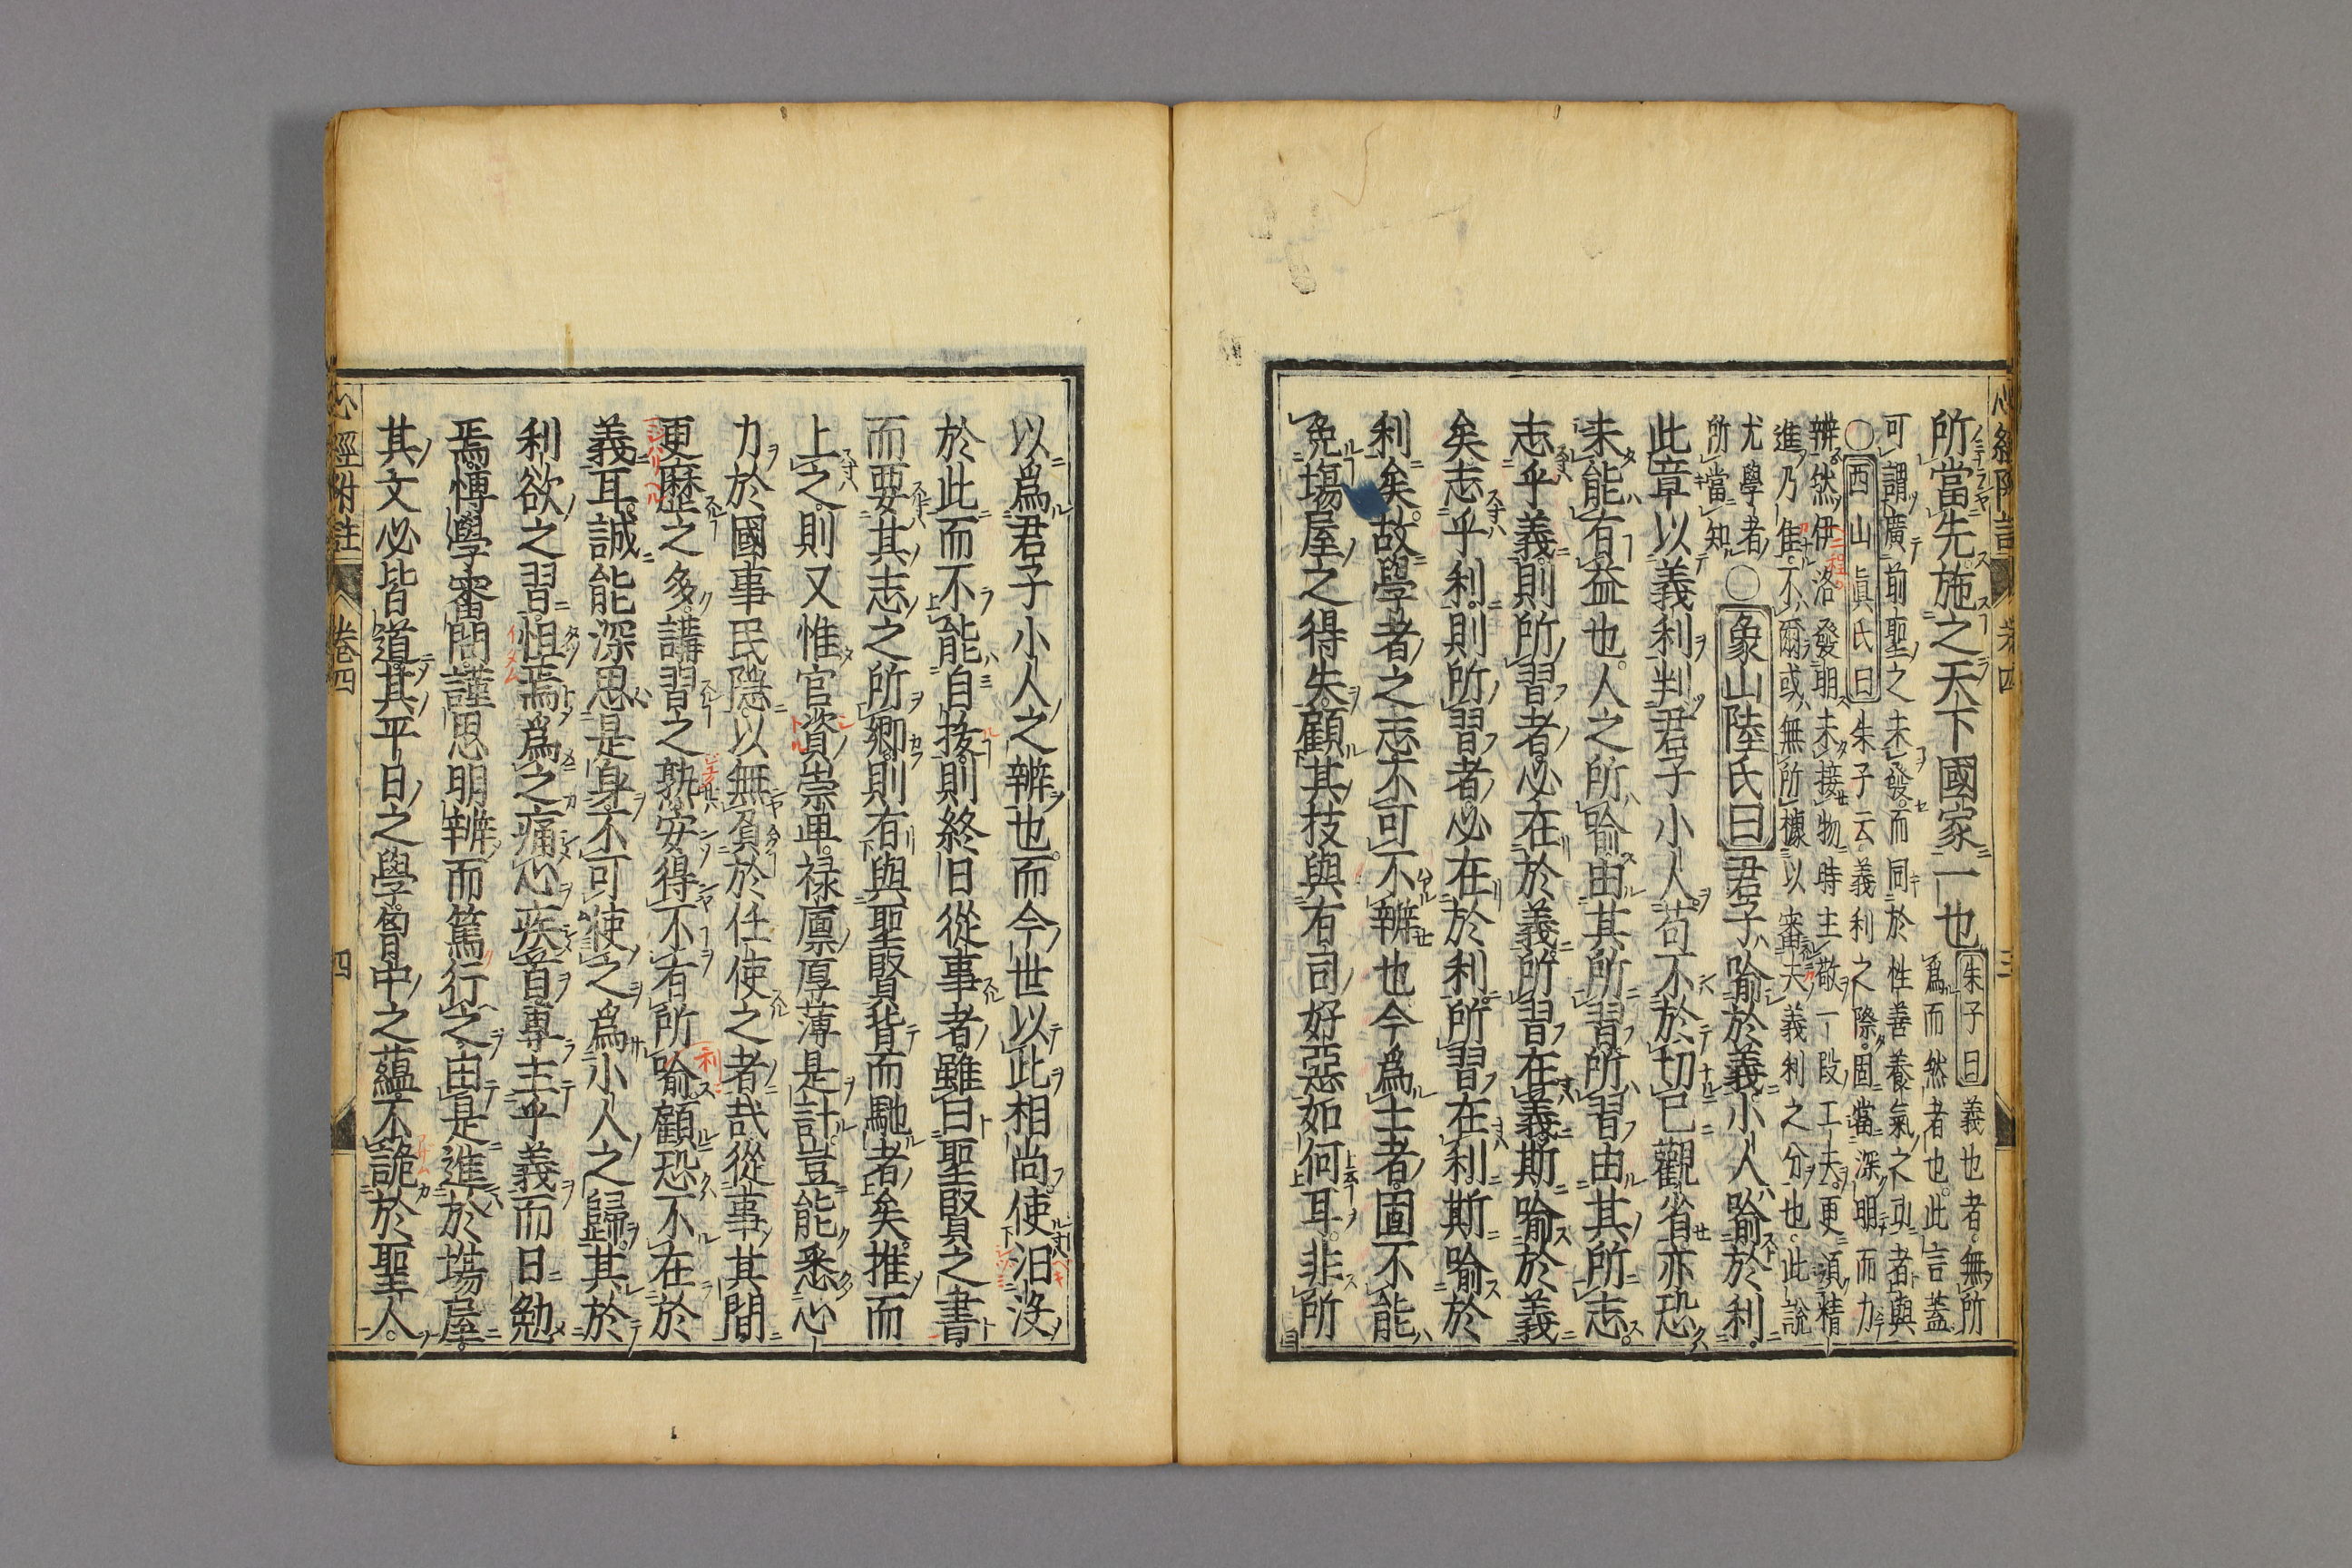 心經附註 卷四 三
所當先施之天下國家一也 朱子曰義也者無所
爲而然者也此言蓋
可謂廣前聖之未發而同於性善養氣之功者與
○西山眞氏曰朱子云義利之際固當深明而力
辨然伊洛發明未接物時主敬一段工夫更須精
進乃隹不爾或無所據以審夫義利之分也此說
尤學者
所當知 ○象山陸氏曰君子喻於義小人喻於利
此章以義利判君子小人苟不於切已觀省亦恐
未能有益也人之所喻由其所習所習由其所志
志乎義則所習者必在於義所習在義斯喻於義
矣志乎利則所習者必在於利所習在利斯喻於
利矣故學者之志不可不辨也今爲士者固不能
免塲屋之得失顧其技與有司好惡如何耳非所
以爲君子小人之辨也而今世以此相尚使汨没
於此而不能自拔則終日從事者雖曰聖賢之書
而要其志之所鄉則有與聖賢背而馳者矣推而
上之則又惟官資崇卑祿廩厚薄是計豈能悉心
力於國事民隱以無負於任使之者哉從事其間
更歷之多講習之熟安得不有所喻顧恐不在於
義耳誠能深思是身不可使之爲小人之歸其於
利欲之習怛焉爲之痛心疾首專主乎義而日勉
焉博學審問謹思明辨而篤行之由是進於塲屋
其文必皆道其平日之學胷中之蘊不詭於聖人
心經附註 卷四 四